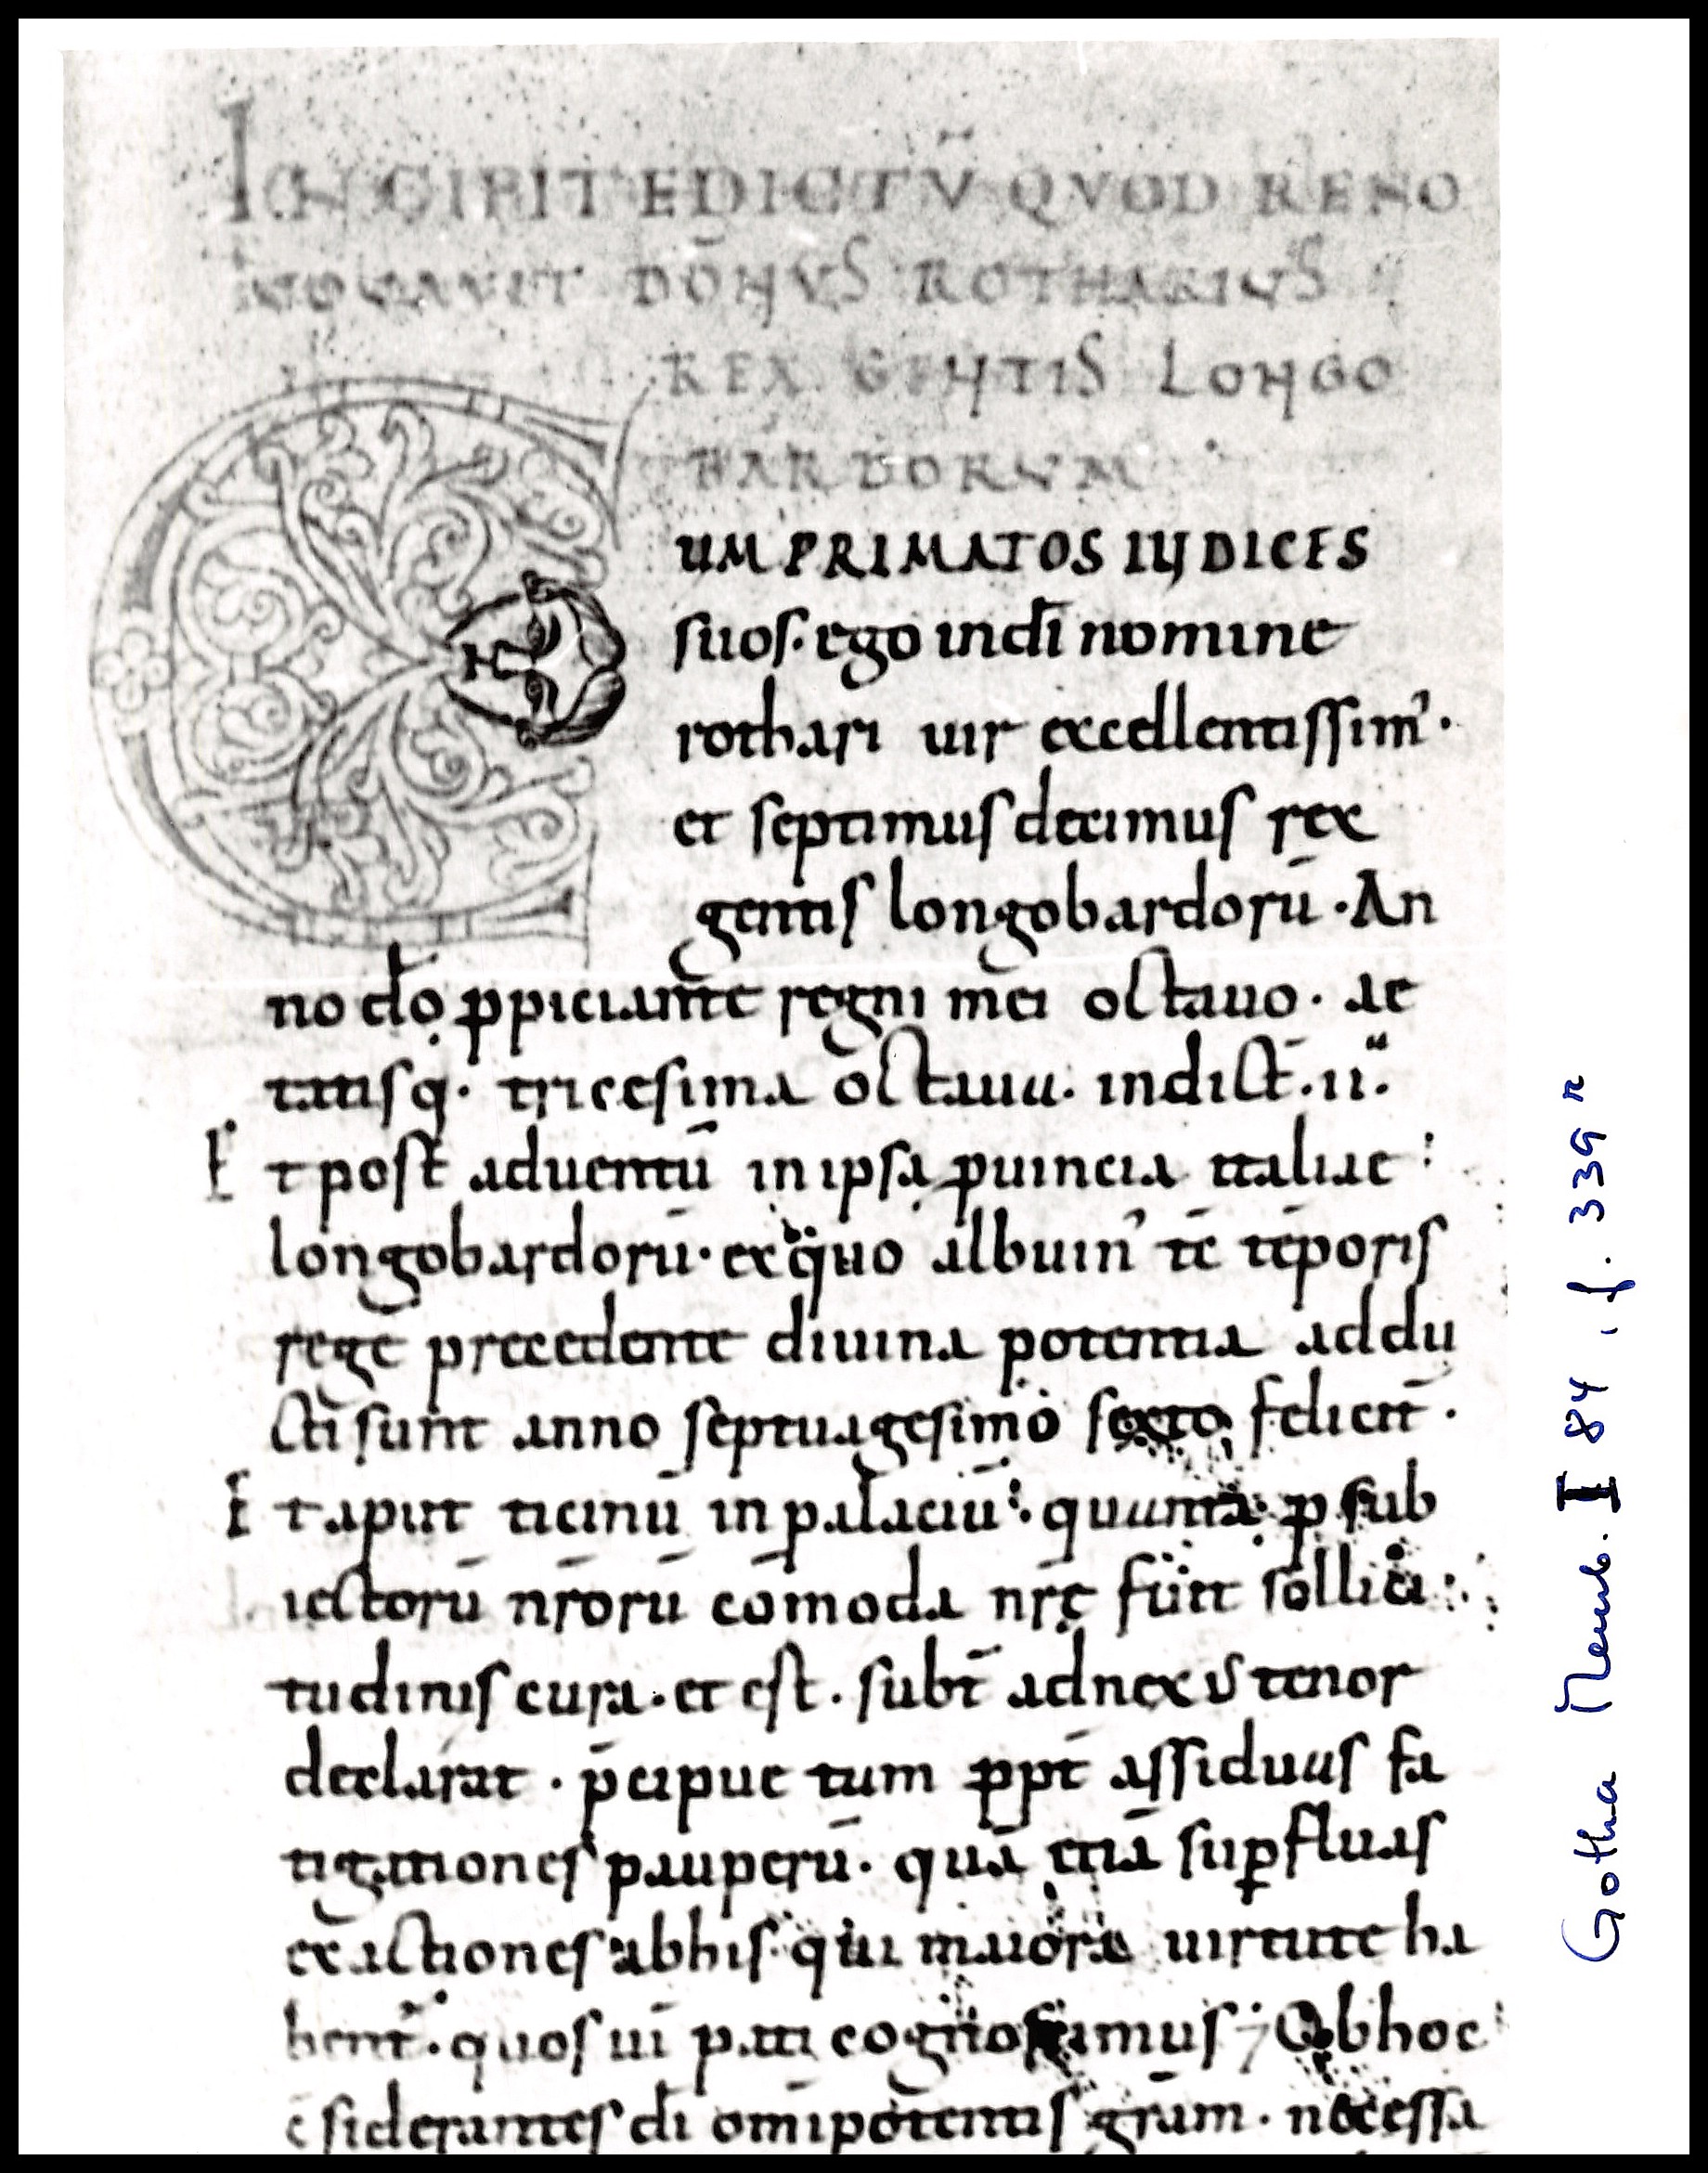 INCIPIT EDICTV̄ QVOD RENO
NOVAVIT DŌNVS ROTHARIVS
REX GENTIS LONGO
BARDORVM
CUM PRIMATOS IUDICES
suos. ego in dī nomine
rothari uir excellentissim᾽.
et septimus decimus rex
gentis longobardorū. An
no dō ꝓpiciante regni mei octauo. ae
tatisq. tricesima octaua. indict̄. ii.
Et post aduentū in ipsa ꝓuincia italiae
longobardorū. ex quo albuin᾽ tc̄ tēporis
rege precedente diuina potentia addu
cti sunt anno septuagesimo sexto felicit̄.
Et aput ticinū in palaciū: quanta ꝓ sub
iectorū nr̄orū cōmoda nr̄ę fuit sollici
tudinis cura. et est. subt̄ adnexus tenor
declarat. p̄cipue tum ꝓpt̄ assiduas fa
tigationes pauperū. quā etiā suꝑfluas
exactiones ab his qui maiore uirtute ha
bent᾽. quos uī pati cognoscimus; Ob hoc
c̄siderantes dī omīpotentis gr̄am. necessa
Gotha Memb. I 84, f. 339r